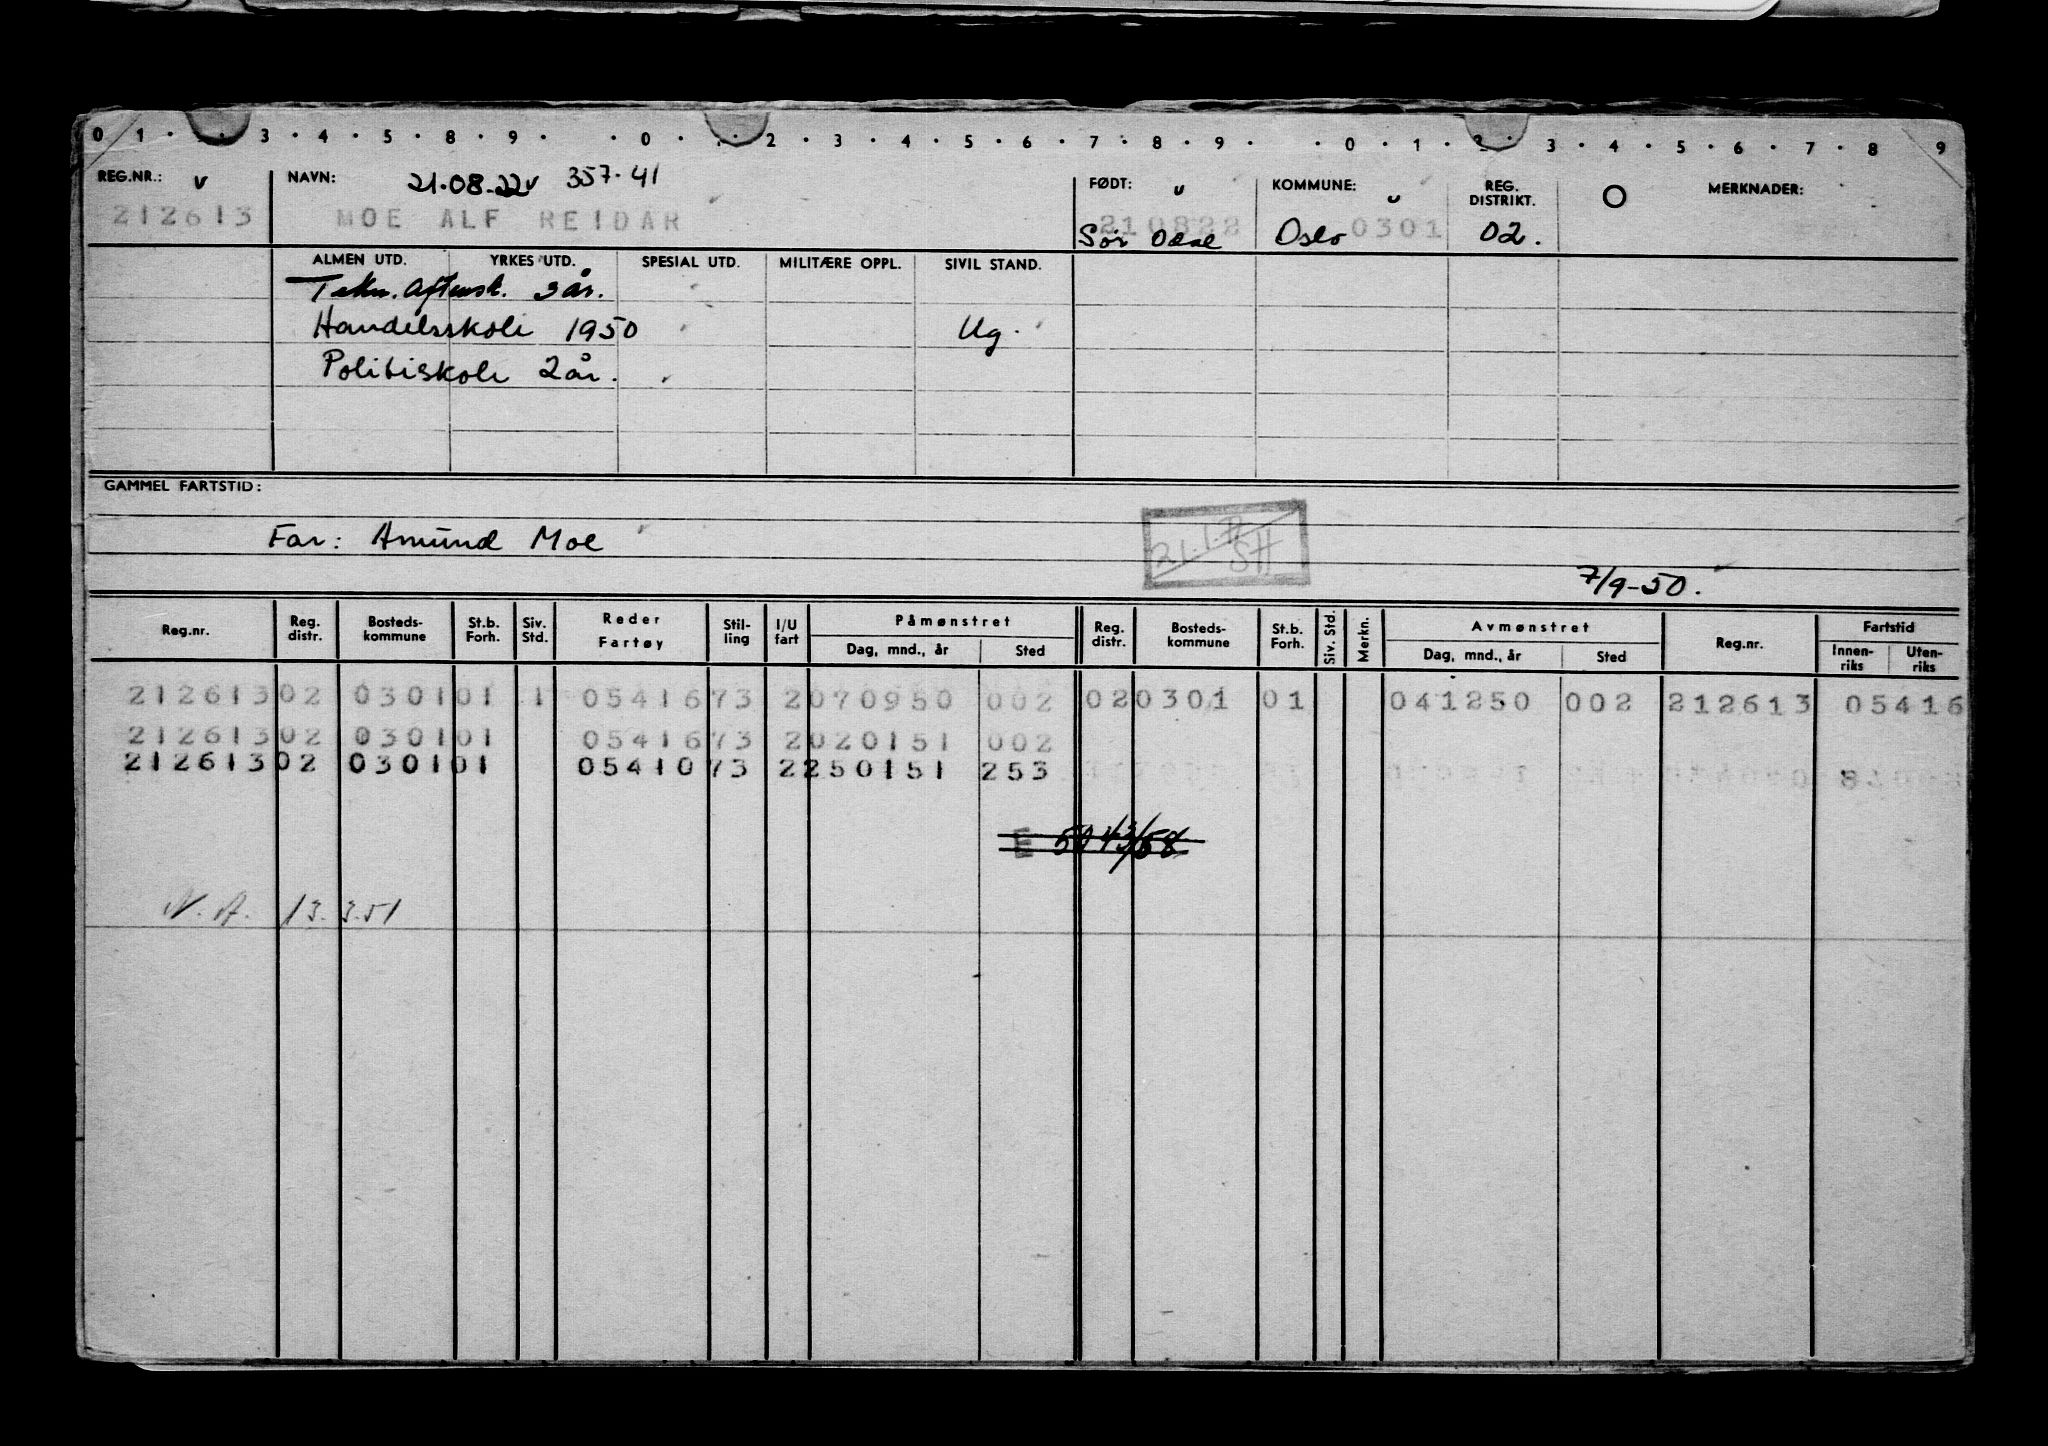 0 1 · 3 · 4 · 5 · 8 · 9 · · 0 · · 2 · 3 · 4 · 5 · 6 · 7 · 8 · 9 · · 0 · 1 · 2 · 3 · 4 · 5 · 6 · 7 · 8 9
REG.NR.: v NAVN: 21.08.22v 357.41 FØDT: v KOMMUNE: v REG. DISTRIKT. O MERKNADER:
212613 MOE ALF REIDAR 210822 0301
Sør Odal Oslo 02.
ALMEN UTD. YRKES UTD. SPESIAL UTD. MILITÆRE OPPL. SIVIL STAND.
Tekn. Aftensk. 3 år.
Handelsskole 1950 Ug.
Politiskole 2 år.
GAMMEL FARTSTID:
Far: Amund Moe
21.1. SH
7/9-50.
Reg.nr. Reg. distr. Bosteds- kommune St.b. Forh. Siv. Std. Reder Fartøy Stil- ling I/U fart Påmønstret Dag, mnd., år Sted Reg. distr. Bosteds- kommune St.b. Forh. Siv. Std. Merkn. Avmønstret Dag, mnd., år Sted Reg.nr. Fartstid Innen- riks Uten- riks
212613 02 0301 01 1 05416 73 2 070950 002 02 0301 01 041250 002 212613 05416
212613 02 0301 01 05416 73 2 020151 002
212613 02 0301 01 05410 73 2 250151 253
E
N. A. 13.3.51